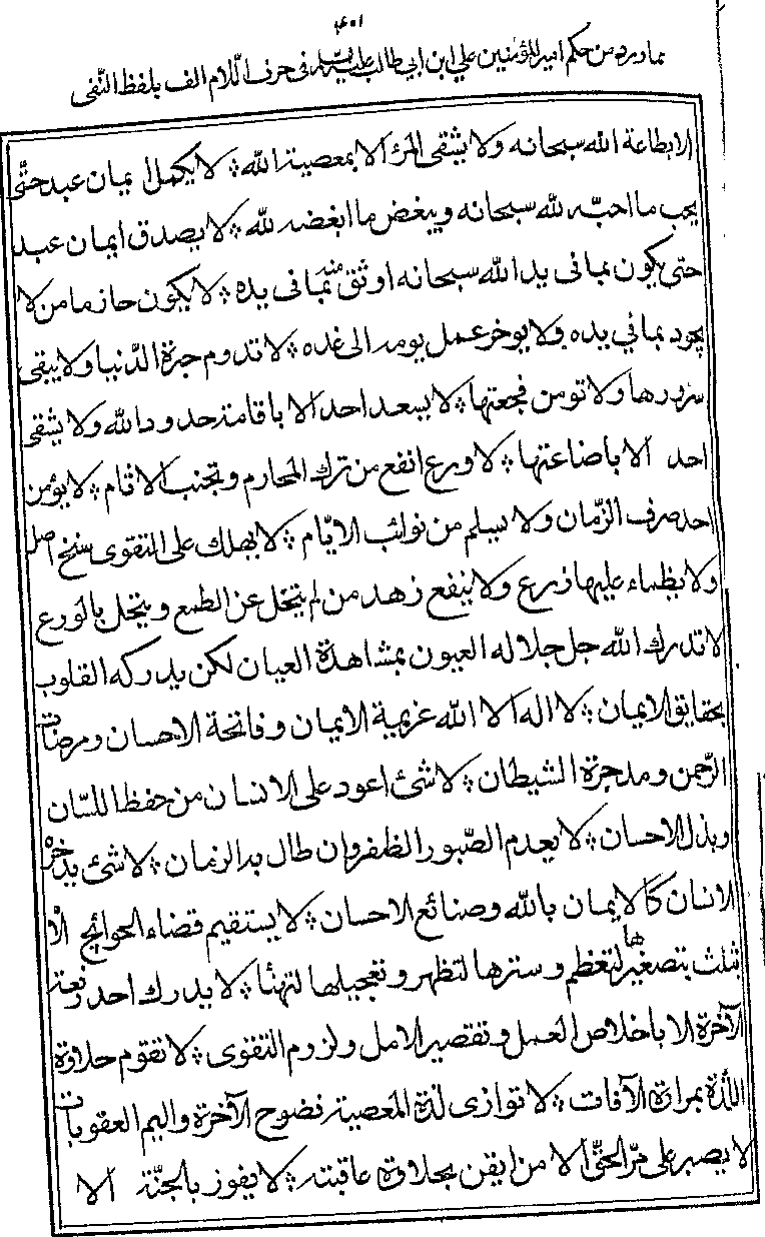 مما ورد من حكم امير المؤمنين علي ابن ابي طالب عليه السلام فى حرف اللام الف بلفظ النّفى
الا بطاعة الله سبحانه ولا يشقى المرء الا بمعصية الله ؞ لا يكمل ايمان عبد حتّى
يحب ما احبّه لله سبحانه ويبغض ما ابغضه لله ؞ لا يصدق ايمان عبد
حتى يكون بما فى يد الله سبحانه اوثق منه بما فى يده ؞ لا يكون حازما من لا
يجود بما في يده ولا يوخر عمل يومه الى غده ؞ لا تدوم حبرة الدّنيا ولا يبقى
سرورها ولا تومن فجعتها ؞ لا يسعد احد الا باقامة حدود الله ولا يشقى
احد الا باضاعتها ؞ لا ورع انفع من ترك المحارم وتجنب الاثام ؞ لا يؤمن
احد صرف الزّمان ولا يسلم من نوائب الايّام ؞ لا يهلك على التقوى سنخ اصل
ولا يظماء عليها زرع ولا ينفع زهد من لم يتخل عن الطمع ويتحل بالورع
لا تدرك الله جل جلاله العيون بمشاهدة العيان لكن يدركه القلوب
بحقايق الايمان ؞ لا اله الا الله عزيمة الايمان وفاتحة الاحسان ومرضات
الرّحمن ومدحرة الشيطان ؞ لا شئ اعود على الانسان من حفظ اللسّان
وبذل الاحسان ؞ لا يعدم الصّبور الظفر وان طال به الزمان ؞ لا شئ يدخره
الانسان كالايمان بالله وصنائع الاحسان ؞ لا يستقيم قضاء الحوائج الا
بثلث بتصغيرها لتعظم وسترها لتظهر وتعجيلها لتهنأ ؞ لا يدرك احد رفعة
الآخرة الا باخلاص العمل وتقصير الامل ولزوم التقوى ؞ لا تقوم حلاوة
اللذّة بمرارة الآفات ؞ لا توازى لذة المعصية فضوح الآخرة واليم العقوبات
لا يصبر على مرّ الحقّ الا من ايقن بحلاوة عاقبته ؞ لا يفوز بالجنّة الا